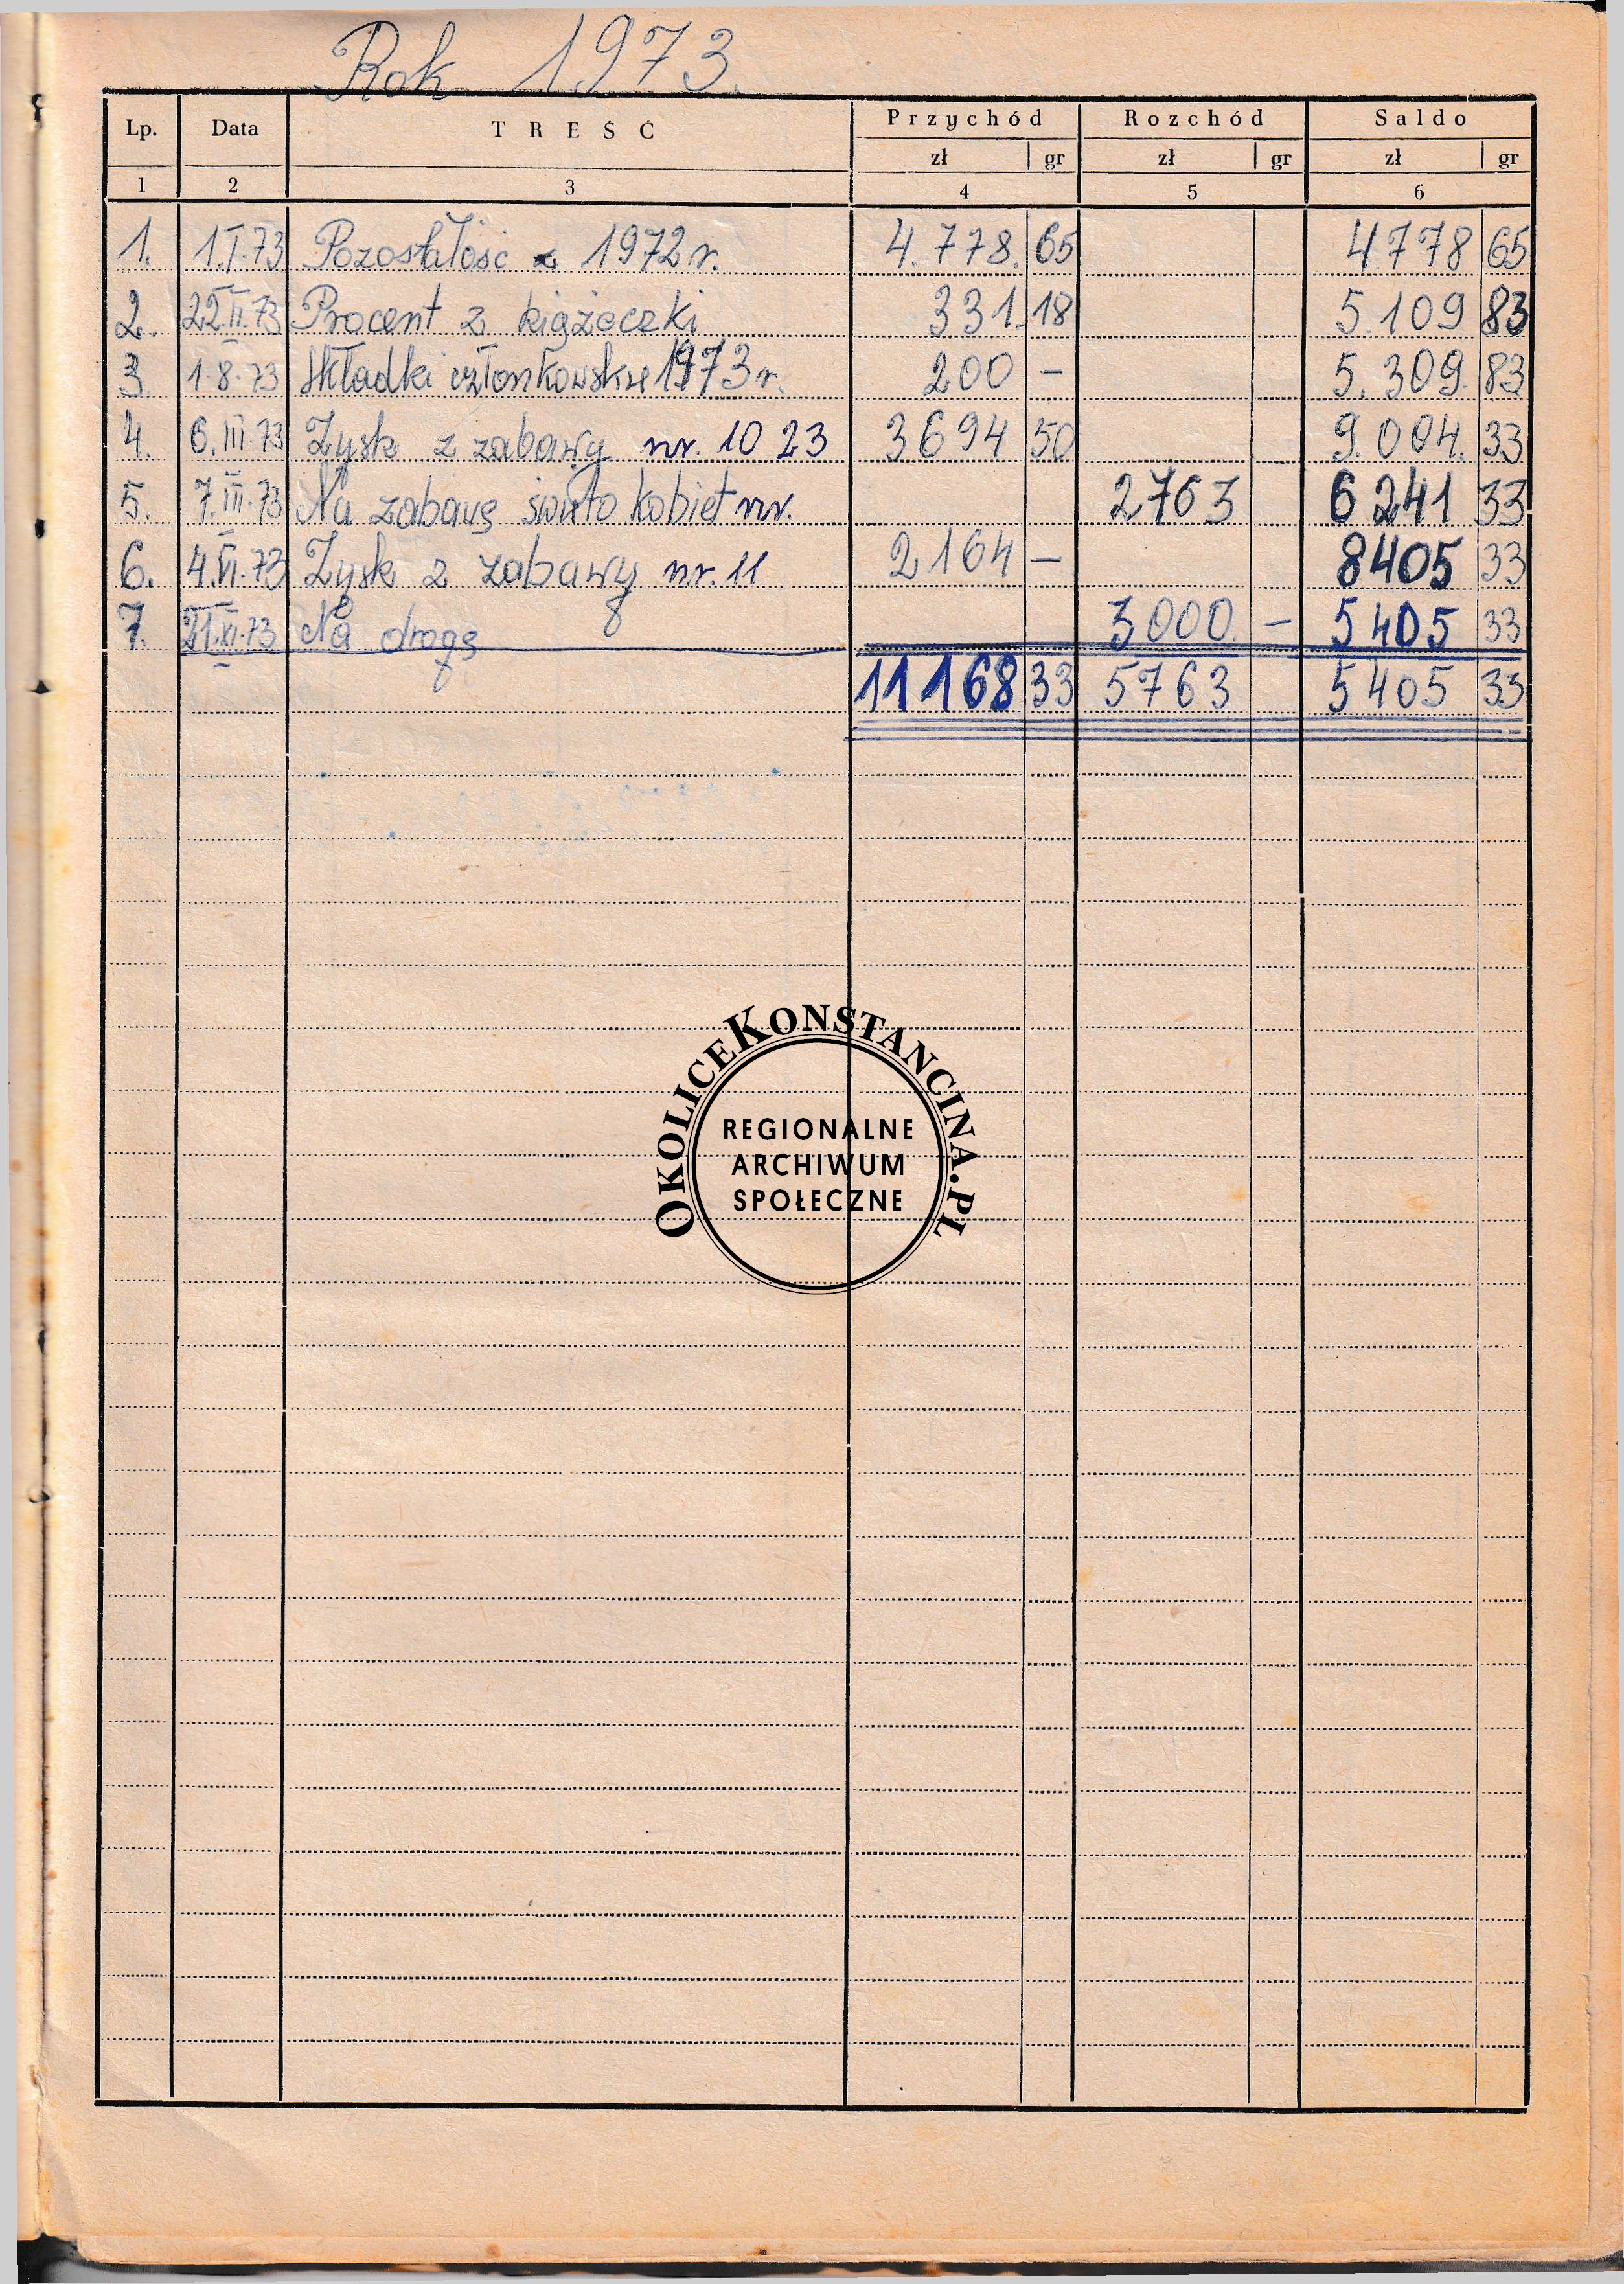 Rok 1973.
Lp. Data TREŚĆ Przychód Rozchód Saldo
zł gr zł gr zł gr
1 2 3 4 5 6
1. 1.I.73 Pozostałość z 1972 r. 4.778. 65 4.778 65
2. 22.II.73 Procent z kiążeczki 331. 18 5.109 83
3. 1.8.73 Składki członkowskie 1973 r. 200 - 5.309. 83
4. 6.III.73 Zysk z zabawy nr. 10 23 3694 50 9.004. 33
5. 7.III.73 Na zabawę święto kobiet nr. 2763 6241 33
6. 4.VI.73 Zysk z zabawy nr. 11 2164 - 8405 33
7. 21.XI.73 Na drogę 8 3000 - 5405 33
11168 33 5763 5405 33
OKOLICEKONSTANCINA.PL
REGIONALNE
ARCHIWUM
SPOŁECZNE